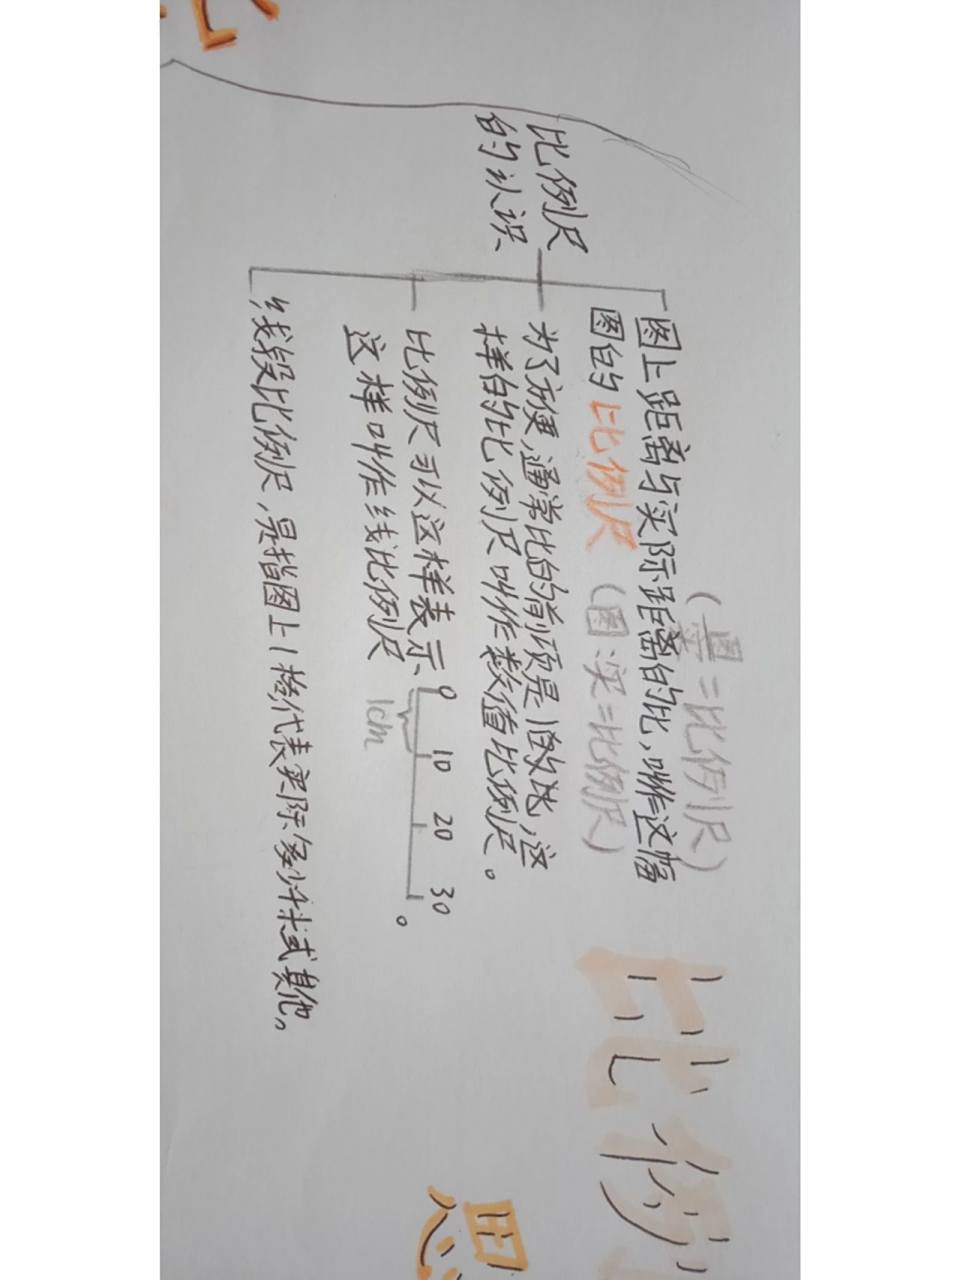 比例
思
比例尺
的认识
(图/实=比例尺)
图上距离与实际距离的比,叫作这幅
图的比例尺(图:实=比例尺)
为了方便,通常比的前项是1的比,这
样的比例尺叫作数值比例尺。
比例尺可以这样表示
0 10 20 30
1cm
这样叫作线比例尺。
线段比例尺,是指图上1格代表实际多少千米或其他。